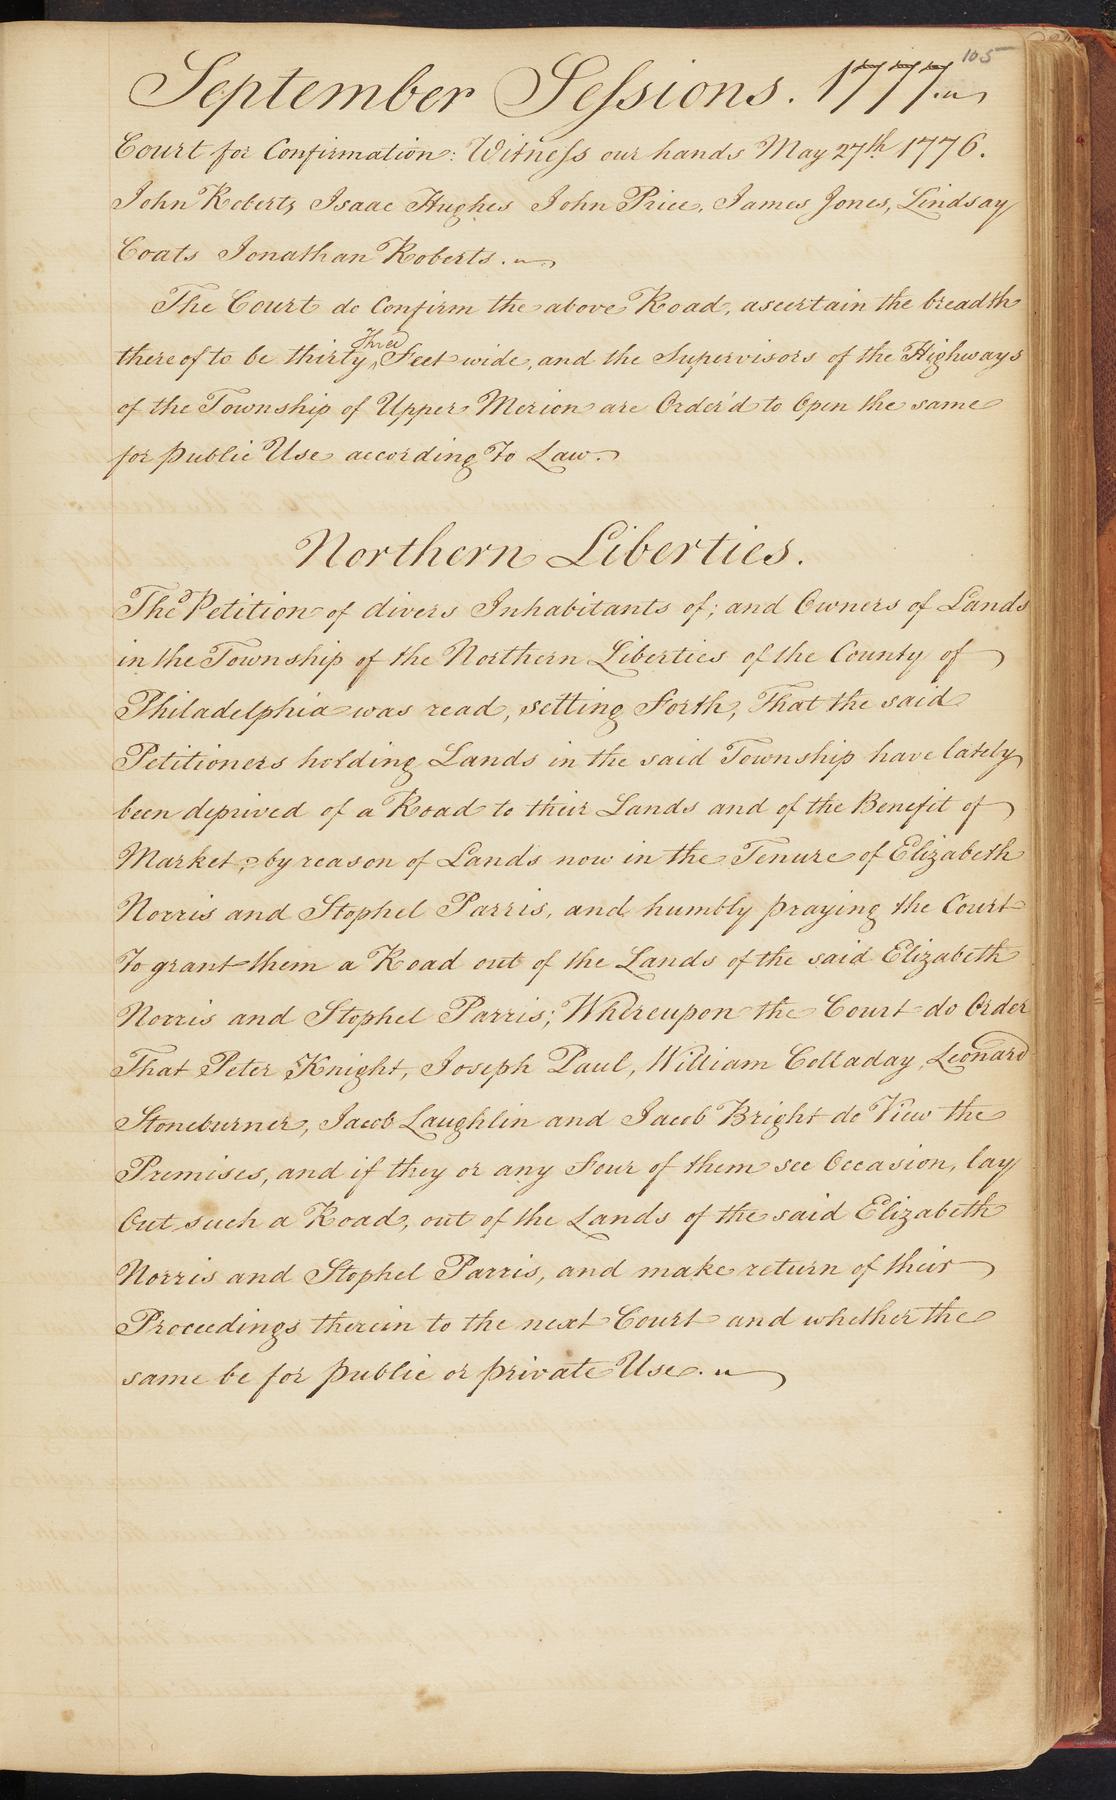 105
September Seſsions. 1777.
Court for Confirmation: Witneſs our hands May 27th 1776.
John Roberts Isaac Hughes John Price, James Jones, Lindsay
Coats Jonathan Roberts.
The Court do Confirm the above Road, ascertain the breadth
Three
thereof to be thirty ‸ Feet wide, and the Supervisors of the Highways
of the Township of Upper Merion are Order'd to Open the same
for public Use according To Law.
Northern Liberties.
The Petition of divers Inhabitants of; and Owners of Lands
in the Township of the Northern Liberties of the County of
Philadelphia was read, setting Forth, That the said
Petitioners holding Lands in the said Township have lately
been deprived of a Road to their Lands and of the Benefit of
Market; by reason of Lands now in the Tenure of Elizabeth
Norris and Stophel Parris, and humbly praying the Court
To grant them a Road out of the Lands of the said Elizabeth
Norris and Stophel Parris; Whereupon the Court do Order
That Peter Knight, Joseph Paul, William Colladay, Leonard
Stoneburner, Jacob Laughlin and Jacob Bright do View the
Premises, and if they or any Four of them see Occasion, lay
Out such a Road, out of the Lands of the said Elizabeth
Norris and Stophel Parris, and make return of their
Proceedings therein to the next Court and whether the
same be for public or private Use.